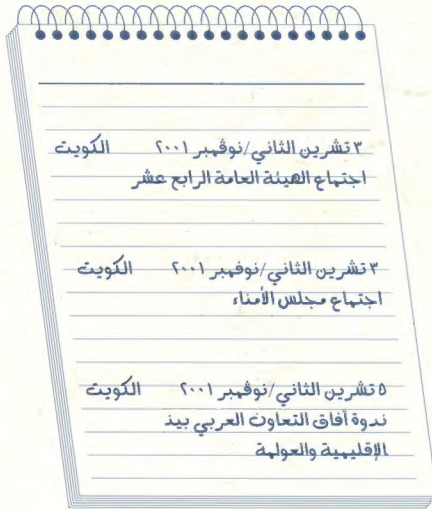 ٣ تشرين الثاني/نوڤمبر ٢٠٠١ الكويت
اجتماع الهيئة العامة الرابع عشر
٣ تشرين الثاني/نوفمبر ٢٠٠١ الكويت
اجتماع مجلس الأمناء
٥ تشرين الثاني/نوڤمبر ٢٠٠١ الكويت
ندوة آفاق التعاون العربي بين
الإقليمية والعولمة